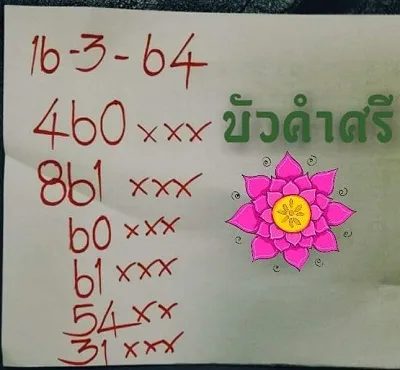 16-3-64
460 xxx
บัวคำศรี
861 xxx
60 xxx
61 xxx
54 xx
31 xxx